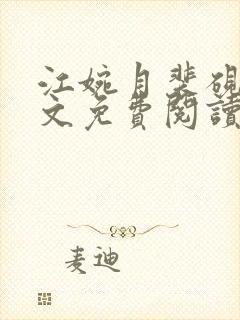 江婉月裴硯
文免費閱讀
麦迪